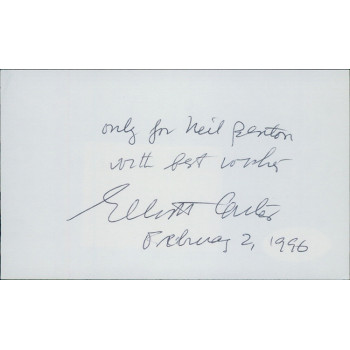 only for Neil Fenton
with best wishes
Elliott Carter
February 2, 1996